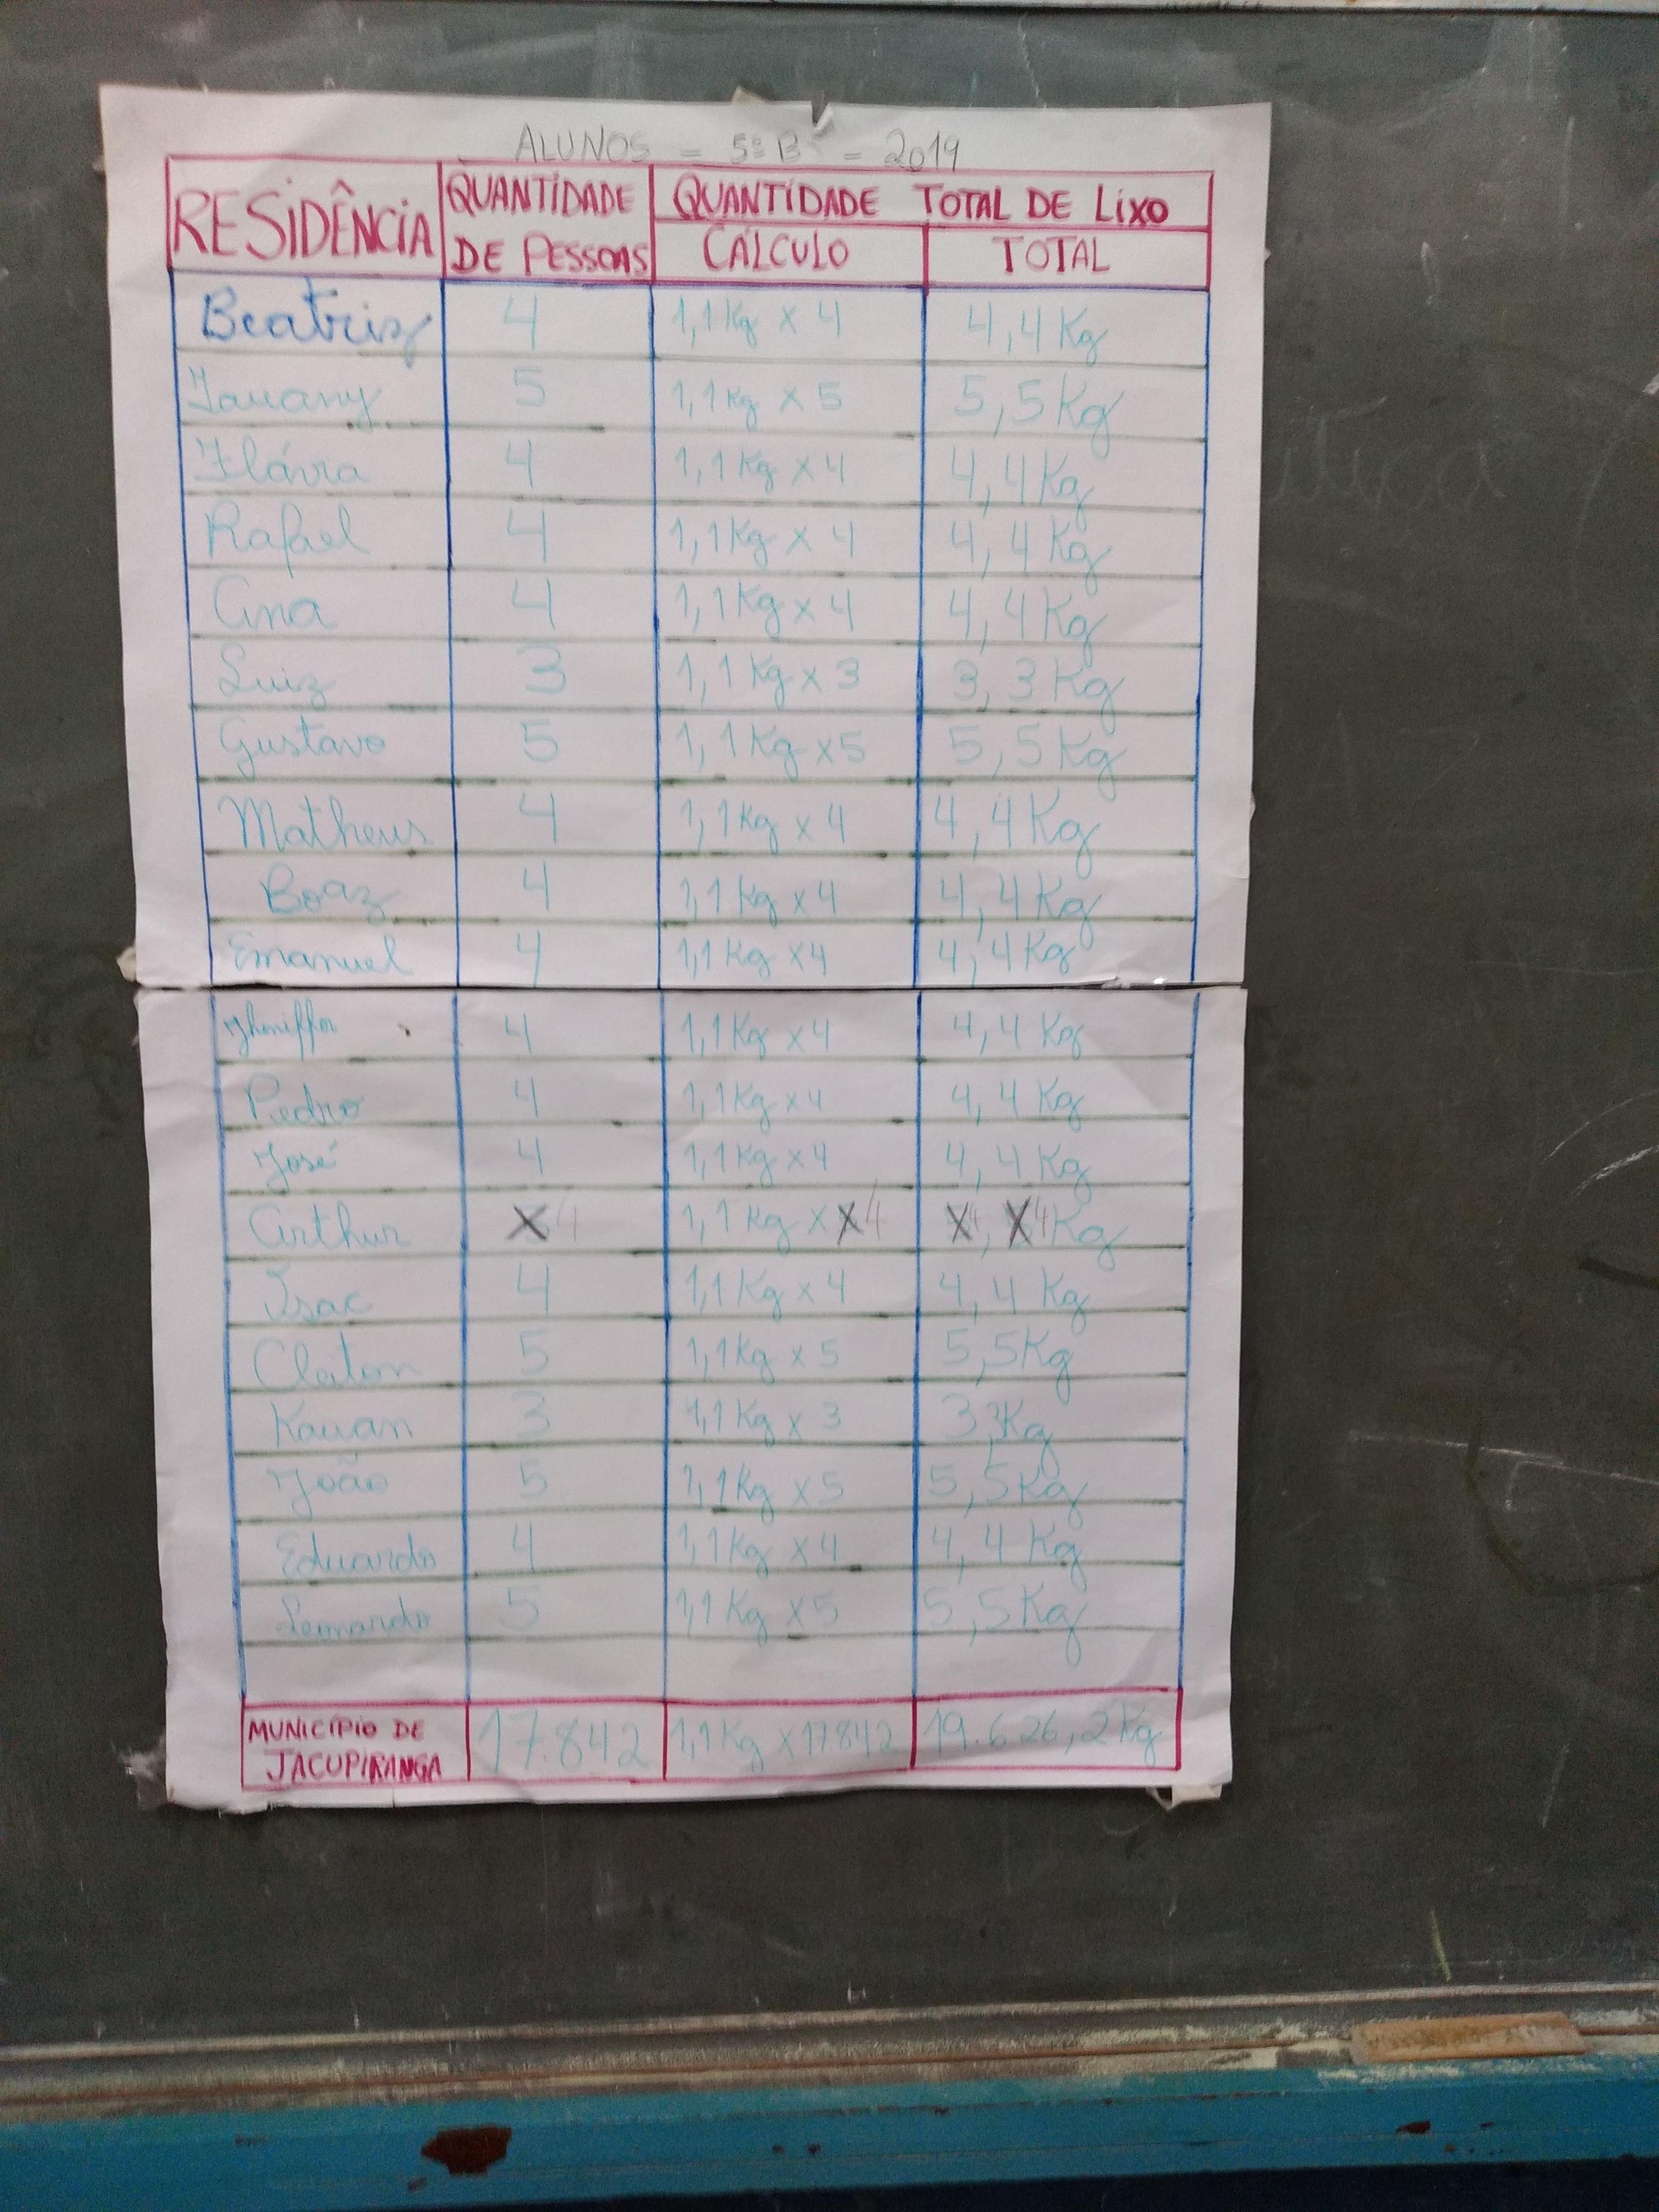 ALUNOS = 5º B = 2019
RESIDÊNCIA QUANTIDADE DE PESSOAS QUANTIDADE TOTAL DE LIXO
CÁLCULO TOTAL
Beatriz 4 1,1 Kg x 4 4,4 Kg
Tauany 5 1,1 Kg x 5 5,5 Kg
Flávia 4 1,1 Kg x 4 4,4 Kg
Rafael 4 1,1 Kg x 4 4,4 Kg
Ana 4 1,1 Kg x 4 4,4 Kg
Luiz 3 1,1 Kg x 3 3,3 Kg
Gustavo 5 1,1 Kg x 5 5,5 Kg
Matheus 4 1,1 Kg x 4 4,4 Kg
Boaz 4 1,1 Kg x 4 4,4 Kg
Emanuel 4 1,1 Kg x 4 4,4 Kg
Jheniffer 4 1,1 Kg x 4 4,4 Kg
Pedro 4 1,1 Kg x 4 4,4 Kg
José 4 1,1 Kg x 4 4,4 Kg
Arthur 4 1,1 Kg x 4 4,4 Kg
Isac 4 1,1 Kg x 4 4,4 Kg
Cleiton 5 1,1 Kg x 5 5,5 Kg
Kauan 3 1,1 Kg x 3 3,3 Kg
João 5 1,1 Kg x 5 5,5 Kg
Eduardo 4 1,1 Kg x 4 4,4 Kg
Leonardo 5 1,1 Kg x 5 5,5 Kg
MUNICÍPIO DE JACUPIRANGA 17.842 1,1 Kg x 17.842 19.626,2 Kg